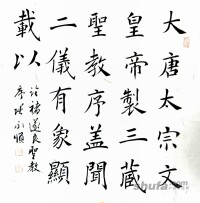 大唐太宗文
皇帝製三藏
聖教序盖聞
二儀有象顯
載以
褚遂良聖教
序